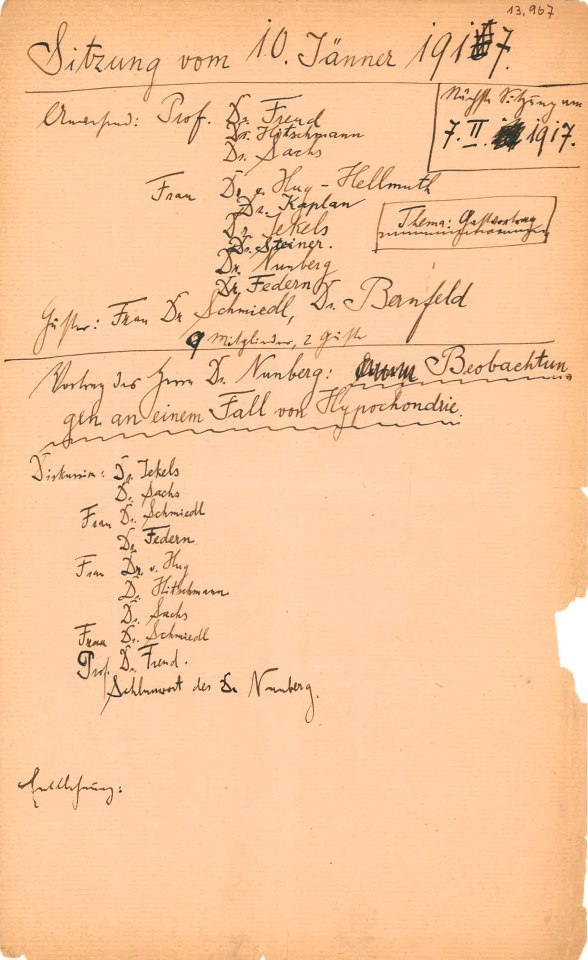 13.967
Sitzung vom 10. Jänner 1917.
Nächste Sitzung am
7. II. 1917.
Anwesend: Prof. Dr. Freud
Dr. Hitschmann
Dr. Sachs
Frau Dr. v. Hug-Hellmuth
Dr. Kaplan
Thema: Gastvortrag
Dr. Jekels
Dr. Steiner.
Dr. Nunberg
Dr. Federn
Gäste: Frau Dr Schmiedl, Dr. Bernfeld
9 Mitglieder, 2 Gäste
Vortrag des Herrn Dr. Nunberg: Beobachtun
gen an einem Fall von Hypochondrie.
Diskussion: Dr. Jekels
Dr. Sachs
Frau Dr. Schmiedl
Dr. Federn
Frau Dr. v. Hug
Dr. Hitschmann
Dr. Sachs
Frau Dr. Schmiedl
Prof. Dr. Freud.
Schlusswort des Dr Nunberg.